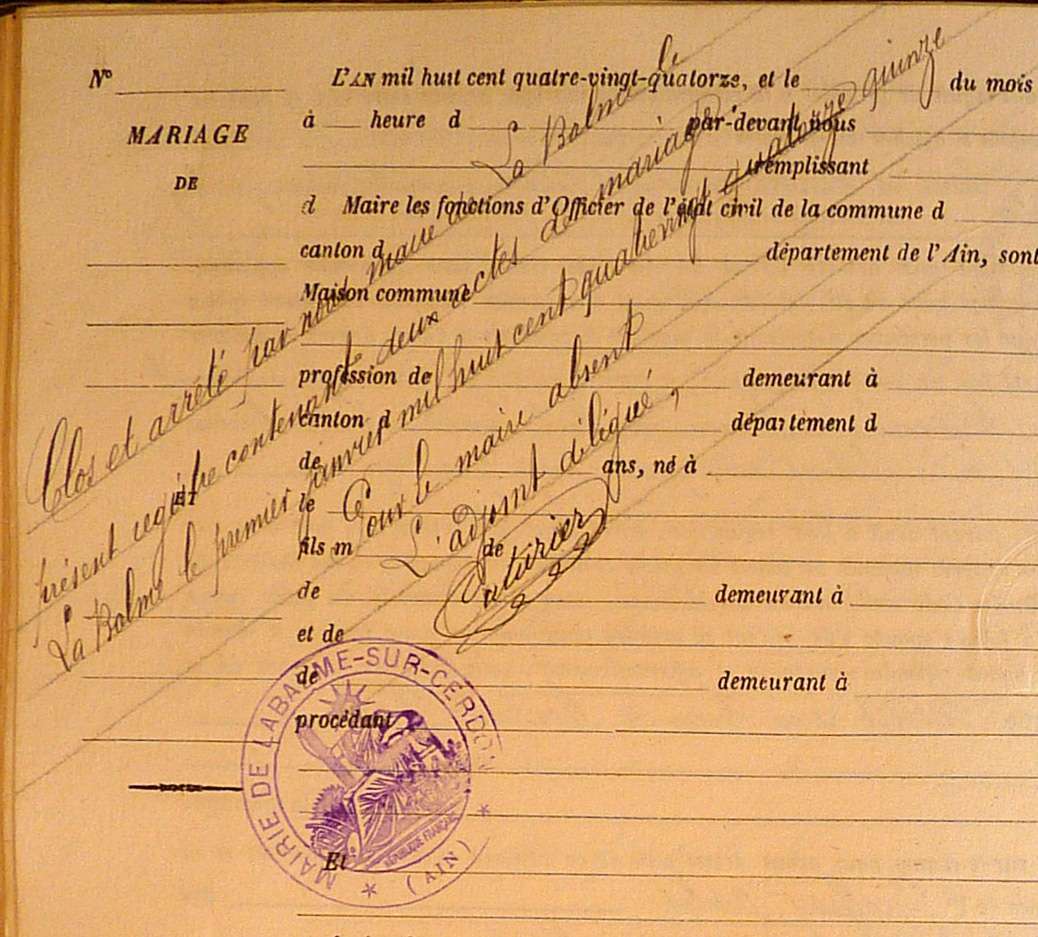 N°
MARIAGE
DE
ET
L'AN mil huit cent quatre-vingt-quatorze, et le du mois
à heure d par-devant nous
remplissant
d Maire les fonctions d'Officier de l'état civil de la commune d
canton d département de l'Ain, sont
Maison commune
profession de demeurant à
canton d département d
de ans, né à
le
fils m de
de demeurant à
et de
de demeurant à
procédant
Et
Clos et arrêté par nous maire de La Balme le
présent registre contenant deux actes de mariage
La Balme le premier janvier mil huit cent quatrevingt quatorze quinze
Pour le maire absent
L'adjoint délégué,
Cuturier
MAIRIE DE LABALME-SUR-CERDON
(AIN)
RÉPUBLIQUE FRANÇAISE